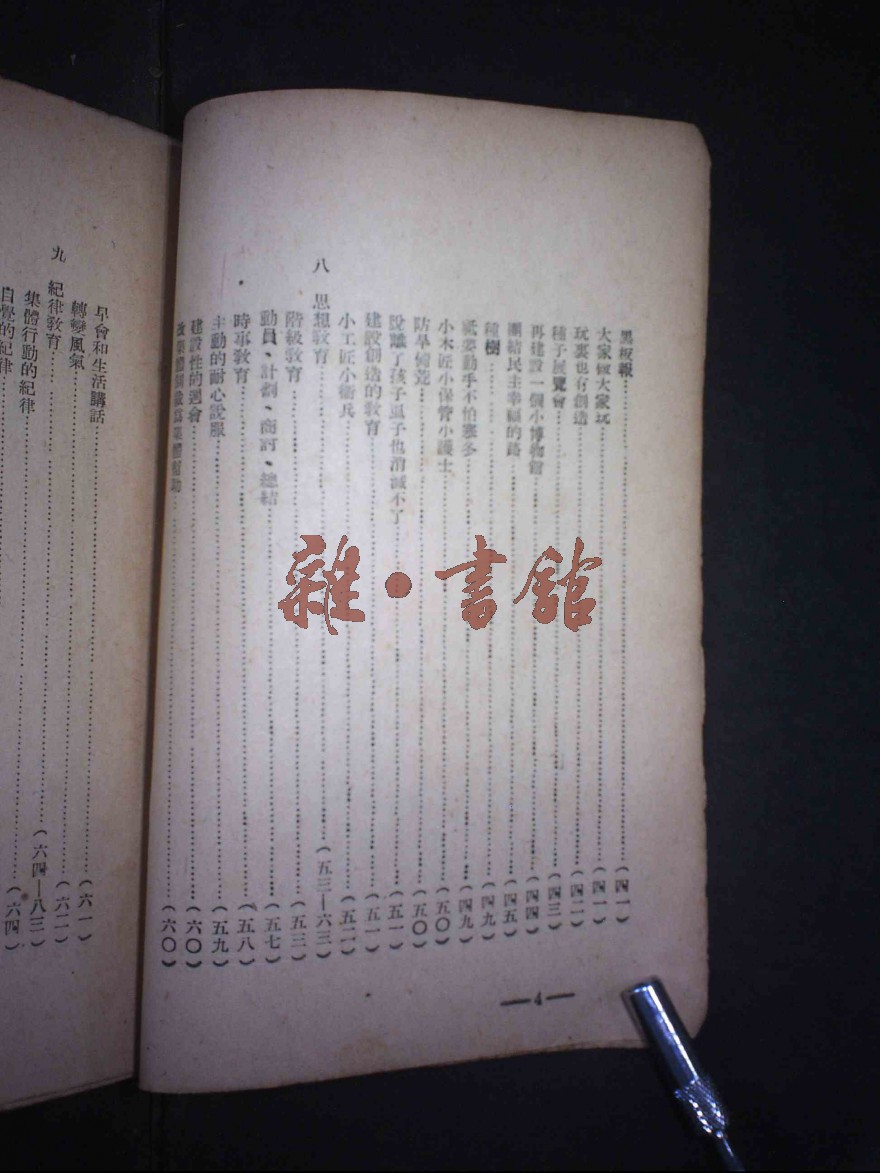 黑板報（四一）
大家做大家玩（四一）
玩裏也有創造（四二）
種子展覽會（四三）
再建設一個小博物館（四四）
團結民主幸福的路（四五）
種樹（四九）
祗要動手不怕寒冬（四九）
小木匠小保管小護士（五〇）
防旱備荒（五〇）
說離了孩子虱子也消滅不了（五一）
建設創造的敎育（五一）
小工匠小衞兵（五二）
八 思想敎育（五三—六三）
階級敎育（五三）
動員、計劃、商討、總結（五七）
時事敎育（五八）
主動的耐心說服（五九）
建設性的週會（六〇）
改集體制裁爲集體幫助（六〇）
—4—
早會和生活講話（六一）
轉變風氣（六二）
九 紀律敎育（六四—八三）
集體行動的紀律（六四）
自覺的紀律
雜·書館